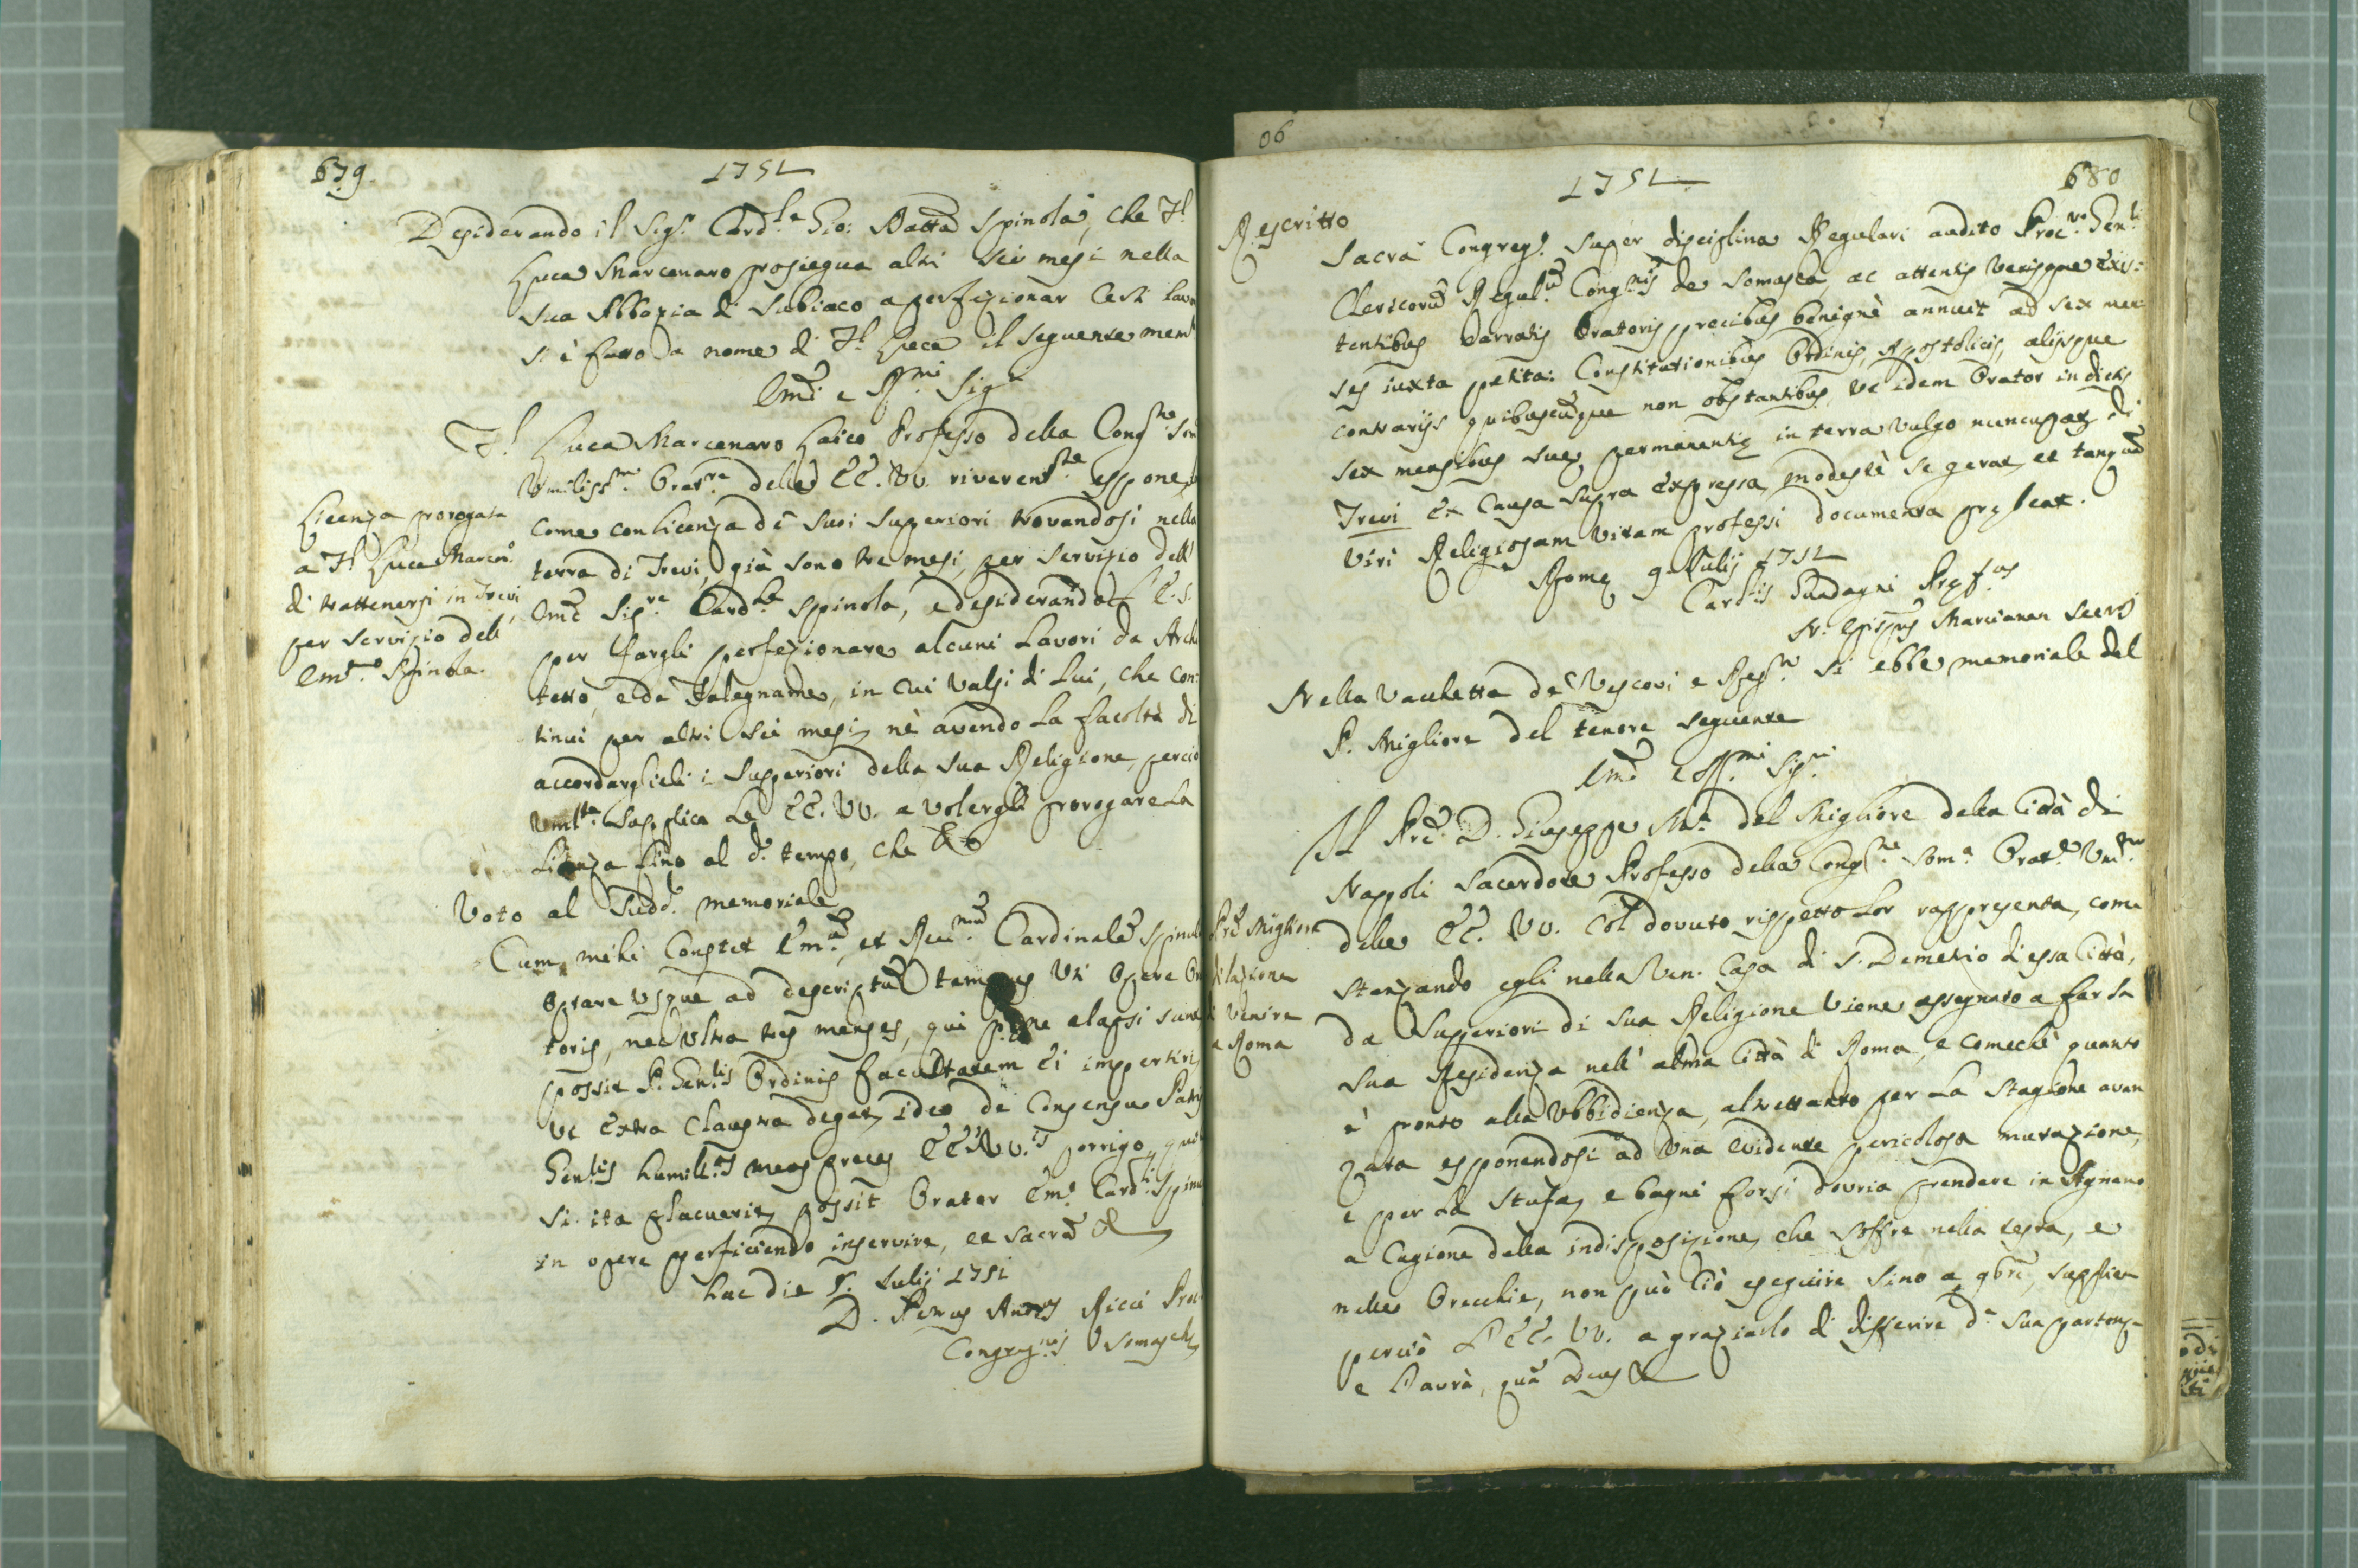 679.
1751
Desiderando il Sig.r Card.le Gio: Batta Spinola, che F.l
Luca Marcenaro prosiegua altri sei mesi nella
sua Abbazia di Subiaco a perfezionar certi lavo
si è fatto a nome di F.l Luca il seguente mem
Emi e R.mi Sig.ri
F.l Luca Marcenaro Laico Professo della Cong.ne Som
Umiliss.mo Orat.re delle EE. VV. riverent.te espone,
come con licenza de suoi Superiori trovandosi nella
terra di Trevi, già sono tre mesi, per servizio dell'
Emo Sig.re Card.le Spinola, e desiderando l'E. S.
per fargli perfezionare alcuni lavori da Archi
tetto, e da Falegname, in cui valsi di lui, che con-
tinui per altri sei mesi, nè avendo la facoltà di
accordarglieli i Superiori della sua Religione, perciò
umil.te supplica le EE. VV. a volergli prorogare la
licenza fino al d.o tempo, che &
Licenza prorogata
a F.l Luca Marcen.o
di trattenersi in Trevi,
per servizio dell'
Em.mo Spinola.
Voto al Sudd.o memoriale
Cum mihi constet Em.um, et Reu.mum Cardinalem Spinola
optare usque ad descriptum tempus uti opere Ora
toris, nec ultra tres menses, qui pene elapsi sunt
possit P. Gen.lis Ordinis facultatem ei impertiri,
ut extra claustra degat, ideo de consensu Patris
Gen.lis humill.as meas preces EE. VV.is porrigo, qu
si ita placuerit, possit Orator Em.o Card.li Spino
in opere perficiendo inservire, et sacra &
hac die 5. Iulij 1751
D. Petrus Ant.us Ricci Pro
Congreg.nis Somasch
1751
680
Rescritto
Sacra Congreg.o super disciplina Regulari audito Proc.re Gen.li
Clericorum Regul.um Cong.nis de Somasca ac attentis verisque exis-
tentibus narratis Oratoris precibus benignè annuit ad sex men
ses iuxta petita: Constitutionibus Ordinis, Apostolicis, alijsque
contrarijs quibuscumque non obstantibus, ut idem Orator in dictis
sex mensibus suæ permanentiæ in terra vulgo nuncupat di
Trevi ex causa supra expressa modestè se gerat, et tanquam
viri Religiosam vitam professi documenta præbeat.
Romæ 9. Iulij 1751
Card.lis Guadagni Præf.us
N. Episcopus Marcianen Secr.s
Nella Vacchetta de' Vescovi e Reg.ri si ebbe memoriale del
P. Migliore del tenore seguente
Emi e R.mi Sig.ri
Il Pre D. Giuseppe M.a del Migliore della Città di
Nappoli Sacerdote Professo della Cong.ne Som.a Orat.e Um.mo
delle EE. VV. col dovuto rispetto lor rappresenta, come
stanzando egli nella Ven. Casa di S. Demetrio di essa Città,
da Superiori di sua Religione viene assegnato a far la
sua Residenza nell' alma Città di Roma, e comechè quanto
è pronto alla Ubbidienza, altrettanto per la Stagione avan
zata esponendosi ad una evidente pericolosa mutazione,
e per la Stufa, e bagni forsi dovria prendere in Agnano
a cagione della indisposizione, che soffre nella testa, e
nelle Orecchie, non può ciò eseguire sino a 9bre, supplica
perciò l'EE. VV. a graziarlo di differire d.a sua partenza
e l'avrà, quam Deus &
Pre Migliore
dilazione
di venire
a Roma